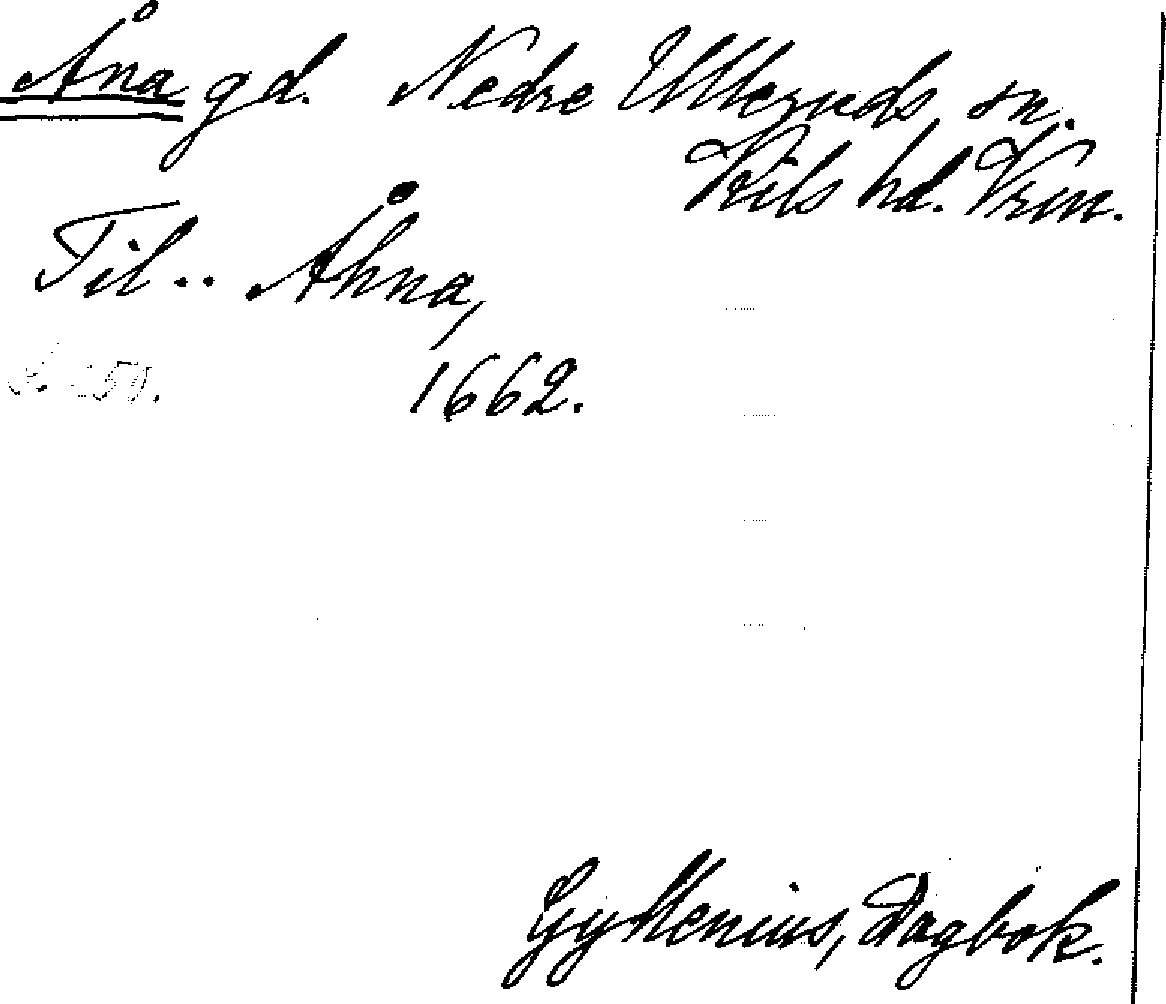 Åna gd. Nedre Ulleruds sn.
Kils hd. Vrm.
Til.. Åhna,
1662.
Gyllenius, Dagbok.